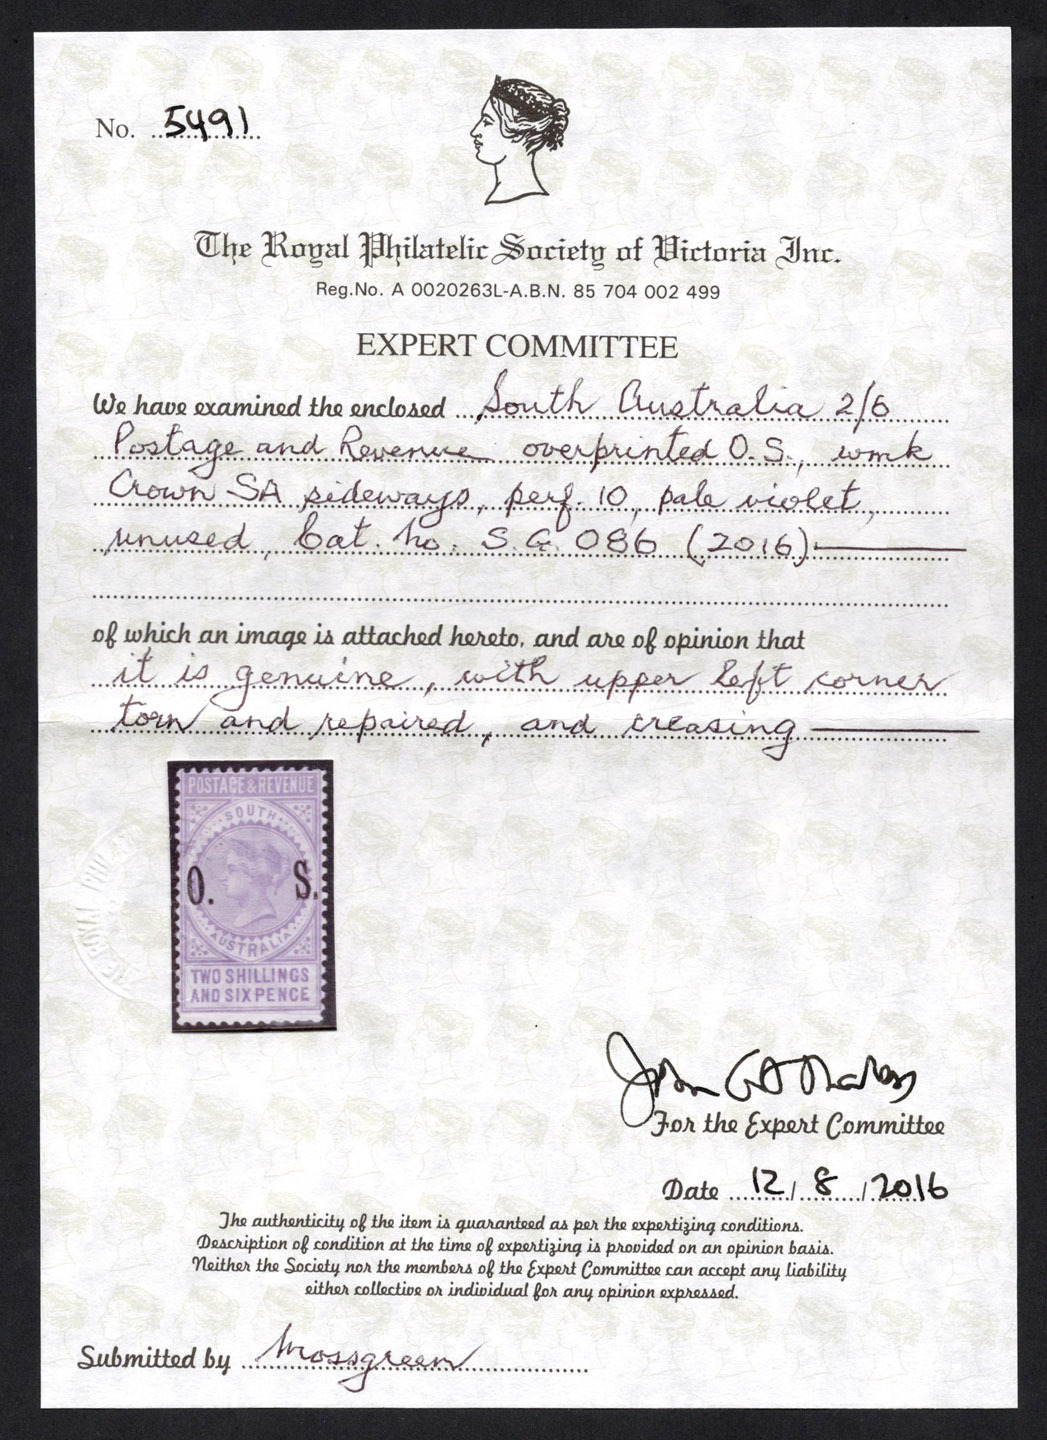 No. 5491
The Royal Philatelic Society of Victoria Inc.
Reg.No. A 0020263L-A.B.N. 85 704 002 499
EXPERT COMMITTEE
We have examined the enclosed South Australia 2/6
Postage and Revenue overprinted O.S., wmk
Crown SA sideways, perf. 10, pale violet,
unused, Cat. No. S.G. O86 (2016)
of which an image is attached hereto, and are of opinion that
it is genuine, with upper left corner
torn and repaired, and creasing
POSTAGE & REVENUE
SOUTH
O. S.
AUSTRALIA
TWO SHILLINGS
AND SIXPENCE
THE ROYAL PHILA
John
For the Expert Committee
Date 12/8/2016
The authenticity of the item is guaranteed as per the expertizing conditions.
Description of condition at the time of expertizing is provided on an opinion basis.
Neither the Society nor the members of the Expert Committee can accept any liability
either collective or individual for any opinion expressed.
Submitted by Mossgreen